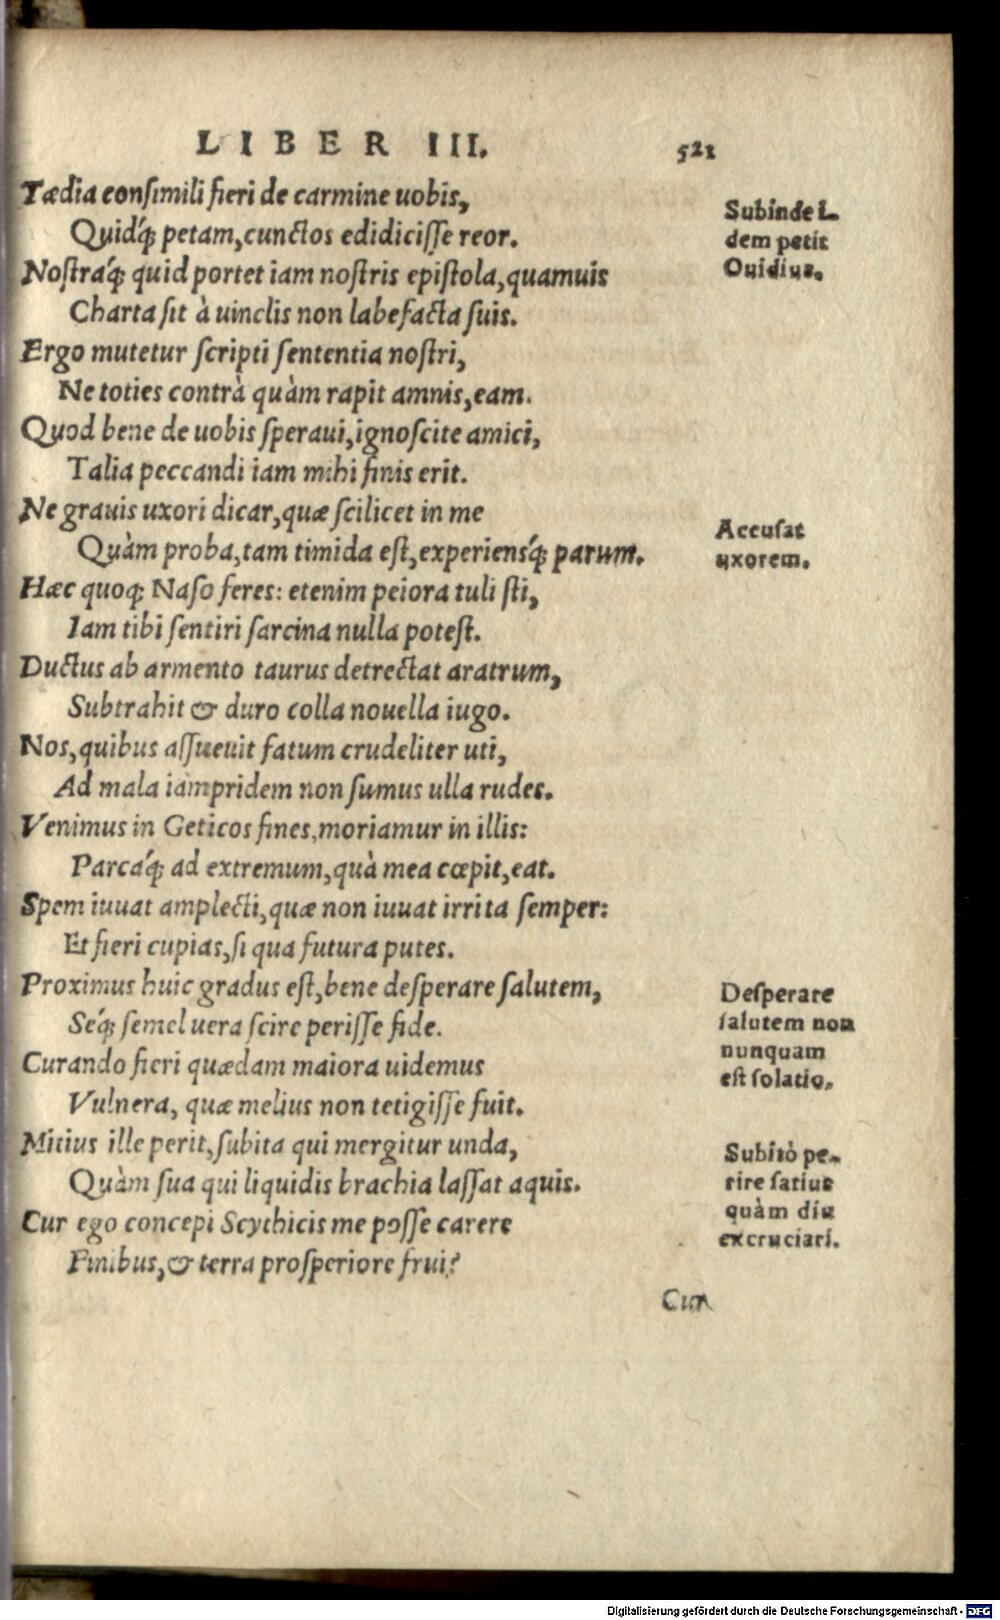 LIBER III. 521
Tædia conſimili fieri de carmine uobis,
Quidq́; petam, cunctos edidiciſſe reor.
Noſtraq́; quid portet iam noſtris epiſtola, quamuis
Charta ſit à uinclis non labefacta ſuis.
Ergo mutetur ſcripti ſententia noſtri,
Ne toties contrà quàm rapit amnis, eam.
Quod bene de uobis ſperaui, ignoſcite amici,
Talia peccandi iam mihi finis erit.
Ne grauis uxori dicar, quæ ſcilicet in me
Quàm proba, tam timida eſt, experiensq́; parum.
Hæc quoq; Naſo feres: etenim peiora tuli ſti,
Iam tibi ſentiri ſarcina nulla poteſt.
Ductus ab armento taurus detrectat aratrum,
Subtrahit & duro colla nouella iugo.
Nos, quibus aſſueuit fatum crudeliter uti,
Ad mala iampridem non ſumus ulla rudes.
Venimus in Geticos fines, moriamur in illis:
Parcaq́; ad extremum, quà mea cœpit, eat.
Spem iuuat amplecti, quæ non iuuat irrita ſemper:
Et fieri cupias, ſi qua futura putes.
Proximus huic gradus eſt, bene deſperare ſalutem,
Seq́; ſemel uera ſcire periſſe fide.
Curando fieri quædam maiora uidemus
Vulnera, quæ melius non tetigiſſe fuit.
Mitius ille perit, ſubita qui mergitur unda,
Quàm ſua qui liquidis brachia laſſat aquis.
Cur ego concepi Scythicis me poſſe carere
Finibus, & terra proſperiore frui?
Cur
Subinde i-
dem petit
Ouidius.
Accuſat
uxorem.
Deſperare
ſalutem non
nunquam
eſt ſolatio.
Subitò pe-
rire ſatius
quàm diu
excruciari.
Digitalisierung gefördert durch die Deutsche Forschungsgemeinschaft - DFG